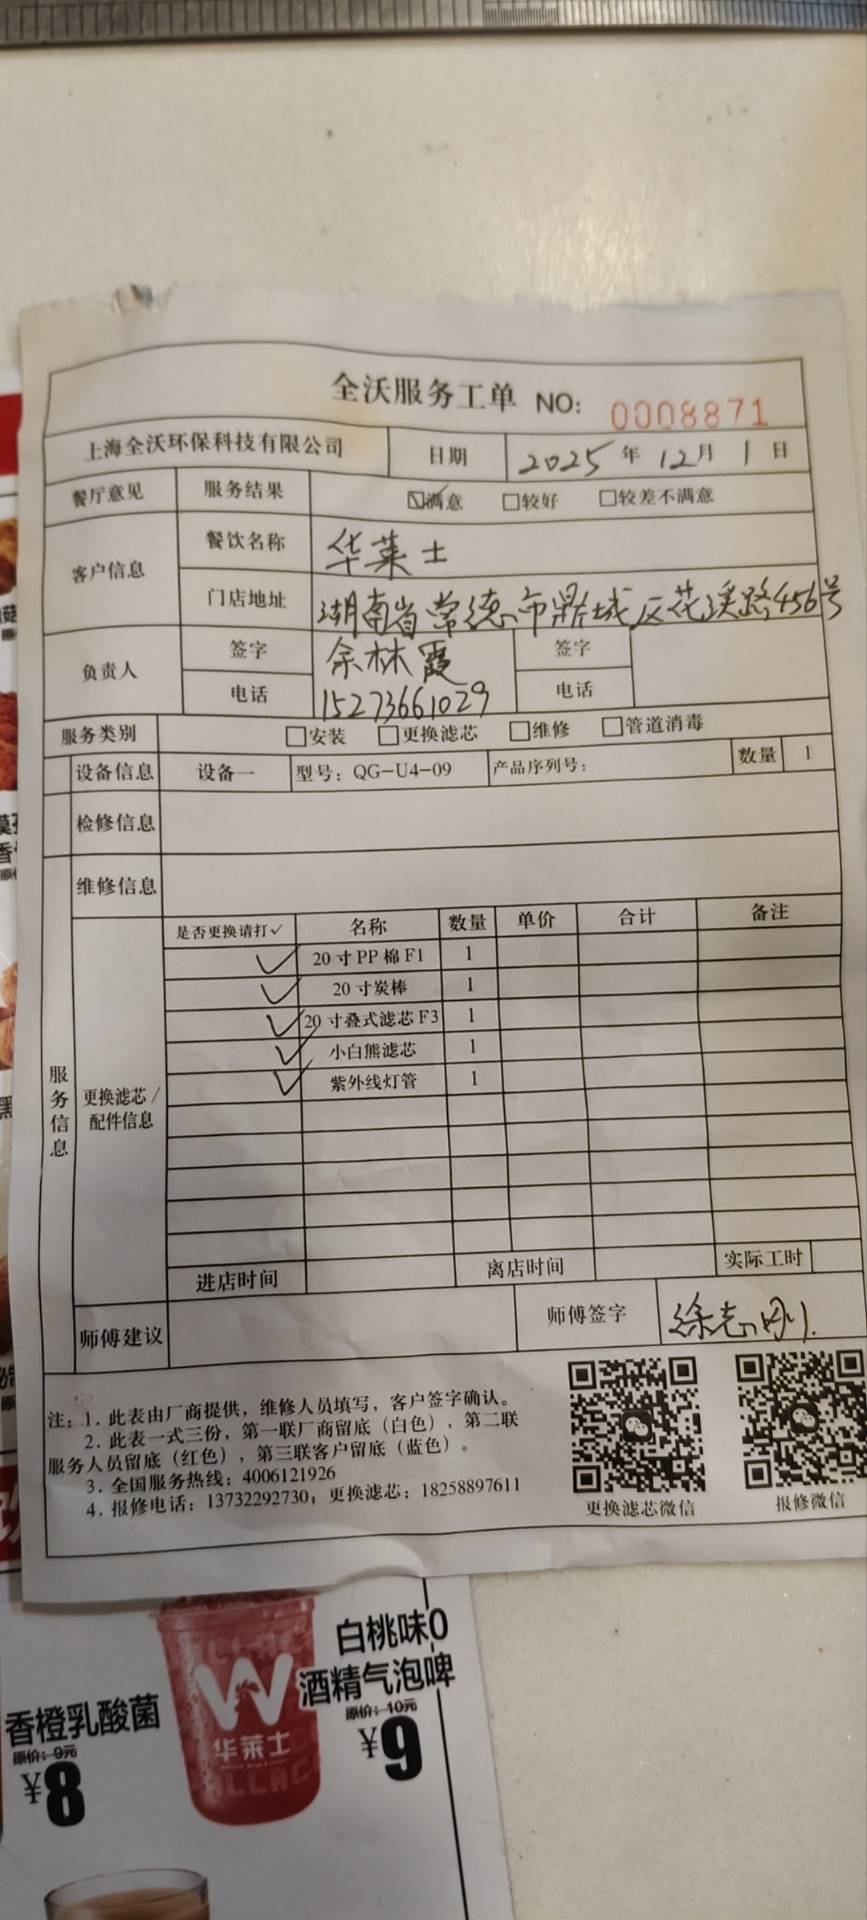 全沃服务工单 NO: 0008871
上海全沃环保科技有限公司 日期 2025年12月1日
餐厅意见 服务结果 ☑满意 □较好 □较差不满意
客户信息 餐饮名称 华莱士
门店地址 湖南省常德市鼎城区花溪路456号
负责人 签字 余林霞 签字
电话 15273661029 电话
服务类别 □安装 □更换滤芯 □维修 □管道消毒
设备信息 设备一 型号：QG-U4-09 产品序列号： 数量 1
检修信息
维修信息
服务信息
更换滤芯/配件信息
是否更换请打✓ 名称 数量 单价 合计 备注
✓ 20寸PP棉F1 1
✓ 20寸炭棒 1
✓ 20寸叠式滤芯F3 1
✓ 小白熊滤芯 1
✓ 紫外线灯管 1
进店时间 离店时间 实际工时
师傅建议 师傅签字 徐志刚
注：1. 此表由厂商提供，维修人员填写，客户签字确认。
2. 此表一式三份，第一联厂商留底（白色），第二联
服务人员留底（红色），第三联客户留底（蓝色）。
3. 全国服务热线：4006121926
4. 报修电话：13732292730；更换滤芯：18258897611
更换滤芯微信 报修微信
白桃味0
酒精气泡啤
原价：10元
¥9
香橙乳酸菌
原价：9元
¥8
华莱士